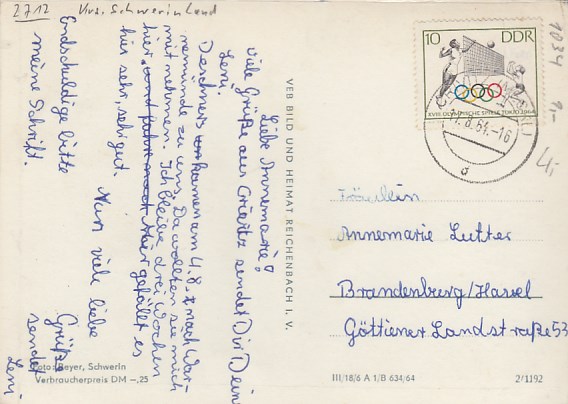 2712 Krs. Schwerin Land
Liebe Annemarie!
Viele Grüße aus Crivitz sendet Dir Deine
Leni.
Deschners kamen am 4.8. nach War-
nemünde zu uns. Da wollten sie mich
mitnehmen. Ich bleibe drei Wochen
hier, und fahre nach Hier gefällt es
hier sehr, sehr gut.
Nun viele liebe
Grüße
sendet
Leni
Entschuldige bitte
meine Schrift.
Foto: Beyer, Schwerin
Verbraucherpreis DM –,25
VEB BILD UND HEIMAT REICHENBACH I. V.
10 DDR
XVIII. OLYMPISCHE SPIELE TOKIO 1964
8.64.-16
a
1034
9,-
4,-
Fräulein
Annemarie Lutter
Brandenburg/Havel
Göttiener Landstraße 53
III/18/6 A 1/B 634/64
2/1192